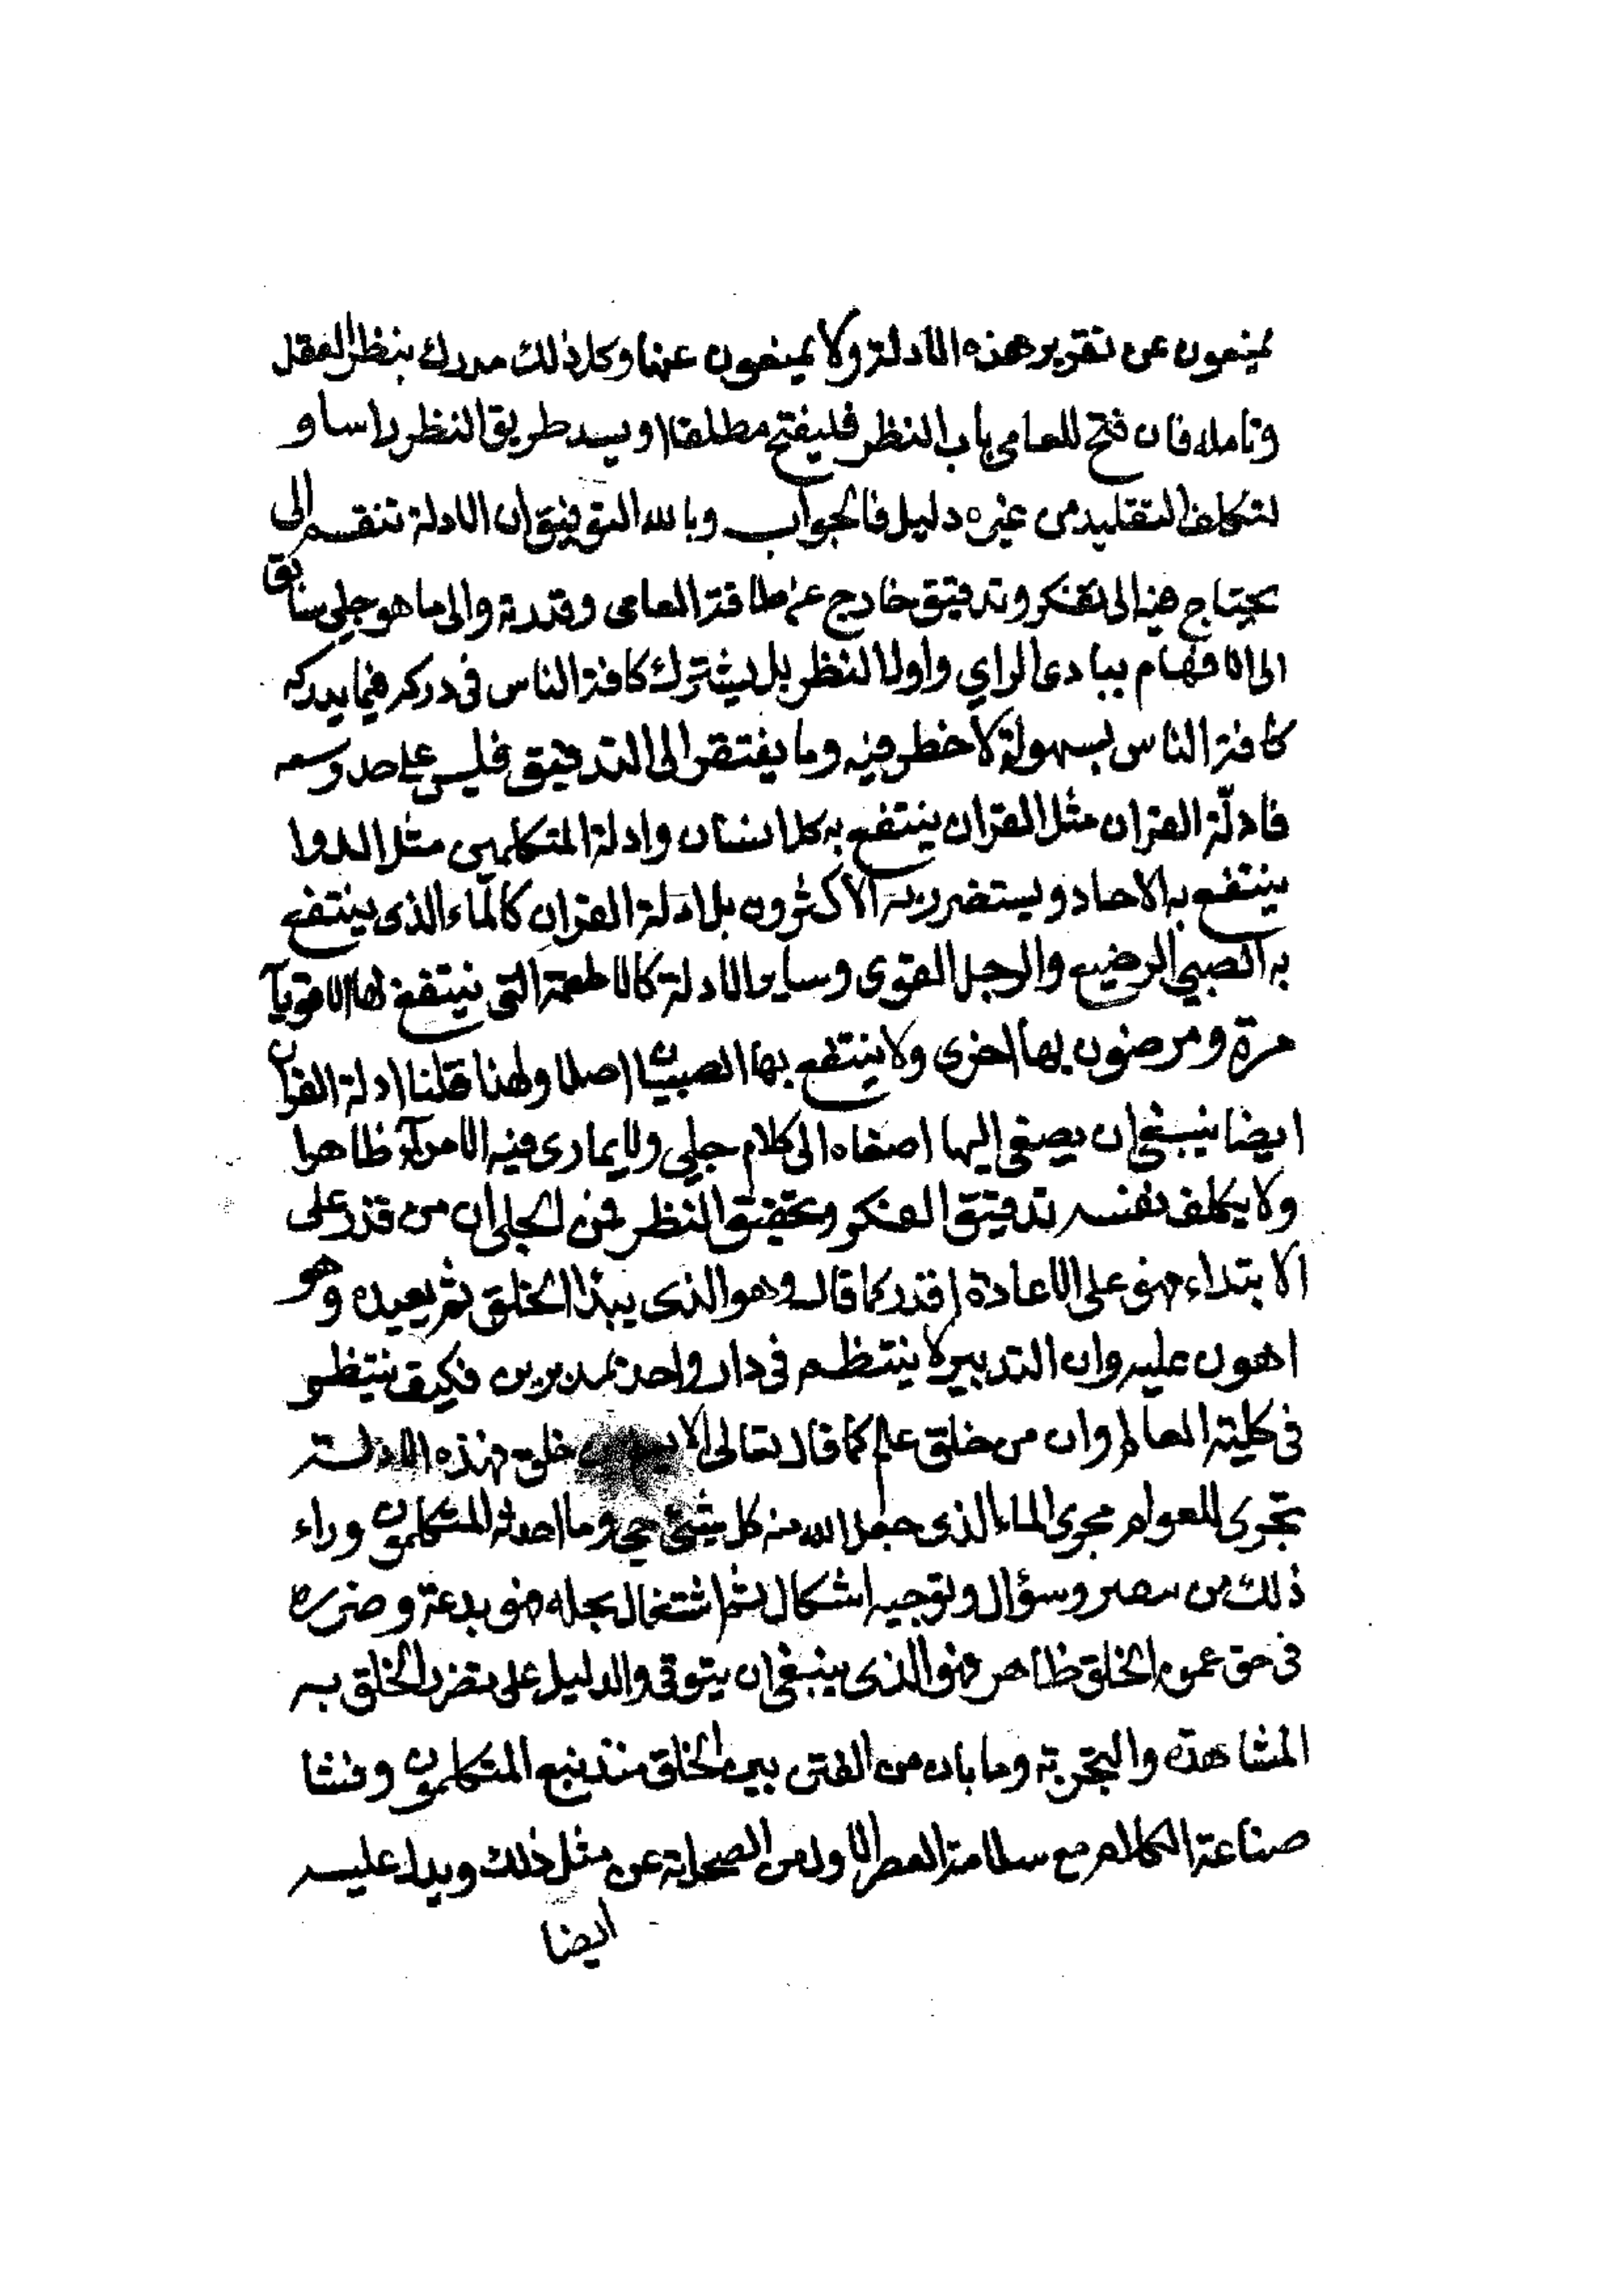 يمنعون عن تقرير هذه الادلة ولا يمنعون عنها وكل ذلك مدرك بنظر العقل
وتامله فان فتح للعامي باب النظر فليفتح مطلقا او يسد طريق النظر راسا و
لتكلف التقليد من غيره دليل فالجواب وبالله التوفيق ان الادلة تنقسم الى
يحتاج فيه الى تفكر وتدقيق خارج عن طاقة العامى وقدرة والى ما هو جلي سابق
الى الافهام ببادى الراي واول النظر بل يشترك كافة الناس فى دركه فيما يدركه
كافة الناس بسهولة لا خطر فيه وما يفتقر الى التدقيق فليس على حد وسعه
فادلّة القران مثل القران ينتفع به كل انسان وادلة المتكلمين مثل الدوا
ينتفع به الاحاد ويستضر ربه الاكثرون بل ادلة القران كالماء الذى ينتفع
به الصبي الرضيع والرجل القوى وساير الادلة كالاطعمة التى ينتفع لها الاقويآ
مرة ومرضون بها اخرى ولا ينتفع بها الصبيان اصلا ولهذا قلنا ادلة القران
ايضا ينبغى ان يصغى اليها اصغاه الى كلام جلي ولا يمارى فيه الا مرآء ظاهرا
ولا يكلف نفسه تدقيق الفكر وتحقيق النظر فمن الجلي ان من قدر على
الابتداء فهو على الاعادة اقدر كما قال وهو الذى يبدا الخلق ثم يعيده وهو
اهون عليه وان التدبير لا ينتظم فى دار واحد بمدبرين فكيف ينتظم
فى كلية العالم وان من خلق علم كما قال تعالى الا خلق فهذه الادلة
تجرى للعوام مجرى الماء الذى جعل الله منه كل شىء حي وما احدثه المتكلمون وراء
ذلك من وسؤال وتوجيه اشكال ثم اشتغال بحله فهو بدعة وضرره
فى حق عموم الخلق ظاهر فهو الذى ينبغى ان يتوقى والدليل على تضرر الخلق به
المشاهدة والتجربة وما بان من الفتن بين الخلق منذ نبع المتكلمون وفشا
صناعة الكلام مع سلامة العصر الاول من الصحابة عن مثل ذلك ويدل عليه
ايضا